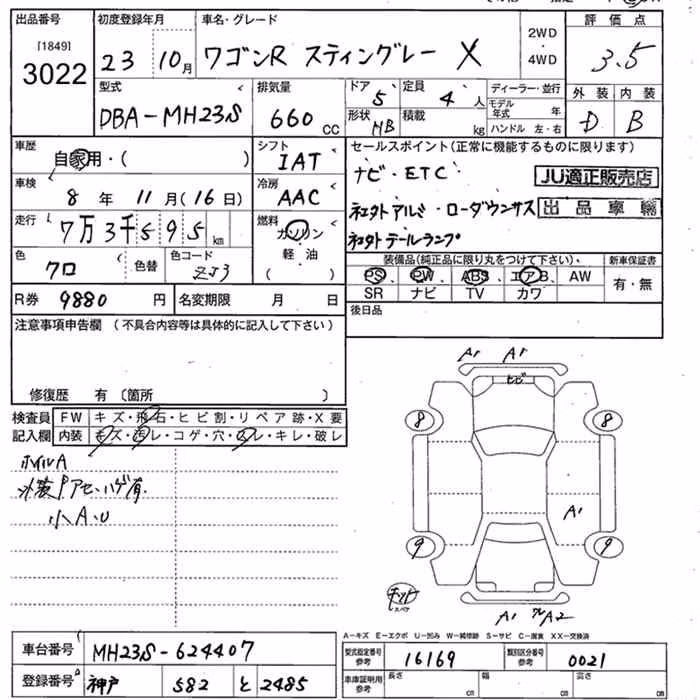 出品番号 初度登録年月 車名・グレード 評価点
[1849] 3022 23 10月 ワゴンR スティングレー X 2WD・4WD 3.5
型式 排気量 ドア 定員 ディーラー・並行 外装 内装
DBA-MH23S 660CC 5 4人 モデル年式 年 D B
形状 HB 積載 kg ハンドル 左・右
車歴 シフト セールスポイント(正常に機能するものに限ります)
自家用・( ) IAT ナビ・ETC JU適正販売店
車検 冷房
8年11月(16日) AAC 社外アルミ・ローダウンサス 出品車輌
走行 燃料
7万3千595km ガソリン・軽油( ) 社外テールランプ
色 色替 色コード 装備品(純正品に限り丸をつけて下さい) 新車保証書
クロ ZJ3 PS PW ABS エアB AW 有・無
SR ナビ TV カワ
R券 9880円 名変期限 月 日 後日品
注意事項申告欄(不具合内容等は具体的に記入して下さい)
修復歴 有〔箇所 〕
検査員記入欄 FW キズ・飛石・ヒビ割・リペア跡・X要
内装 キズ・汚レ・コゲ・穴・凹レ・キレ・破レ
ホイルA
小A.U
A1 A1
ヒビ
8 8
A1
9 9
A1 A2
A-キズ E-エクボ U-凹み W-補修跡 S-サビ C-腐食 XX-交換済
車台番号 MH23S-624407 型式指定番号参考 16169 類別区分番号参考 0021
登録番号 神戸 582 と 2485 車庫証明用参考 長さ cm 幅 cm 高さ cm